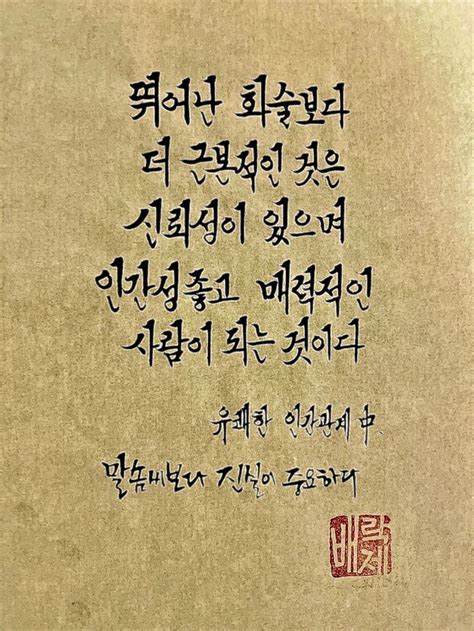 뛰어난 화술보다
더 근본적인 것은
신뢰성이 있으며
인간성좋고 매력적인
사람이 되는 것이다
유쾌한 인간관계 中.
말솜씨보다 진실이 중요하다
배락제